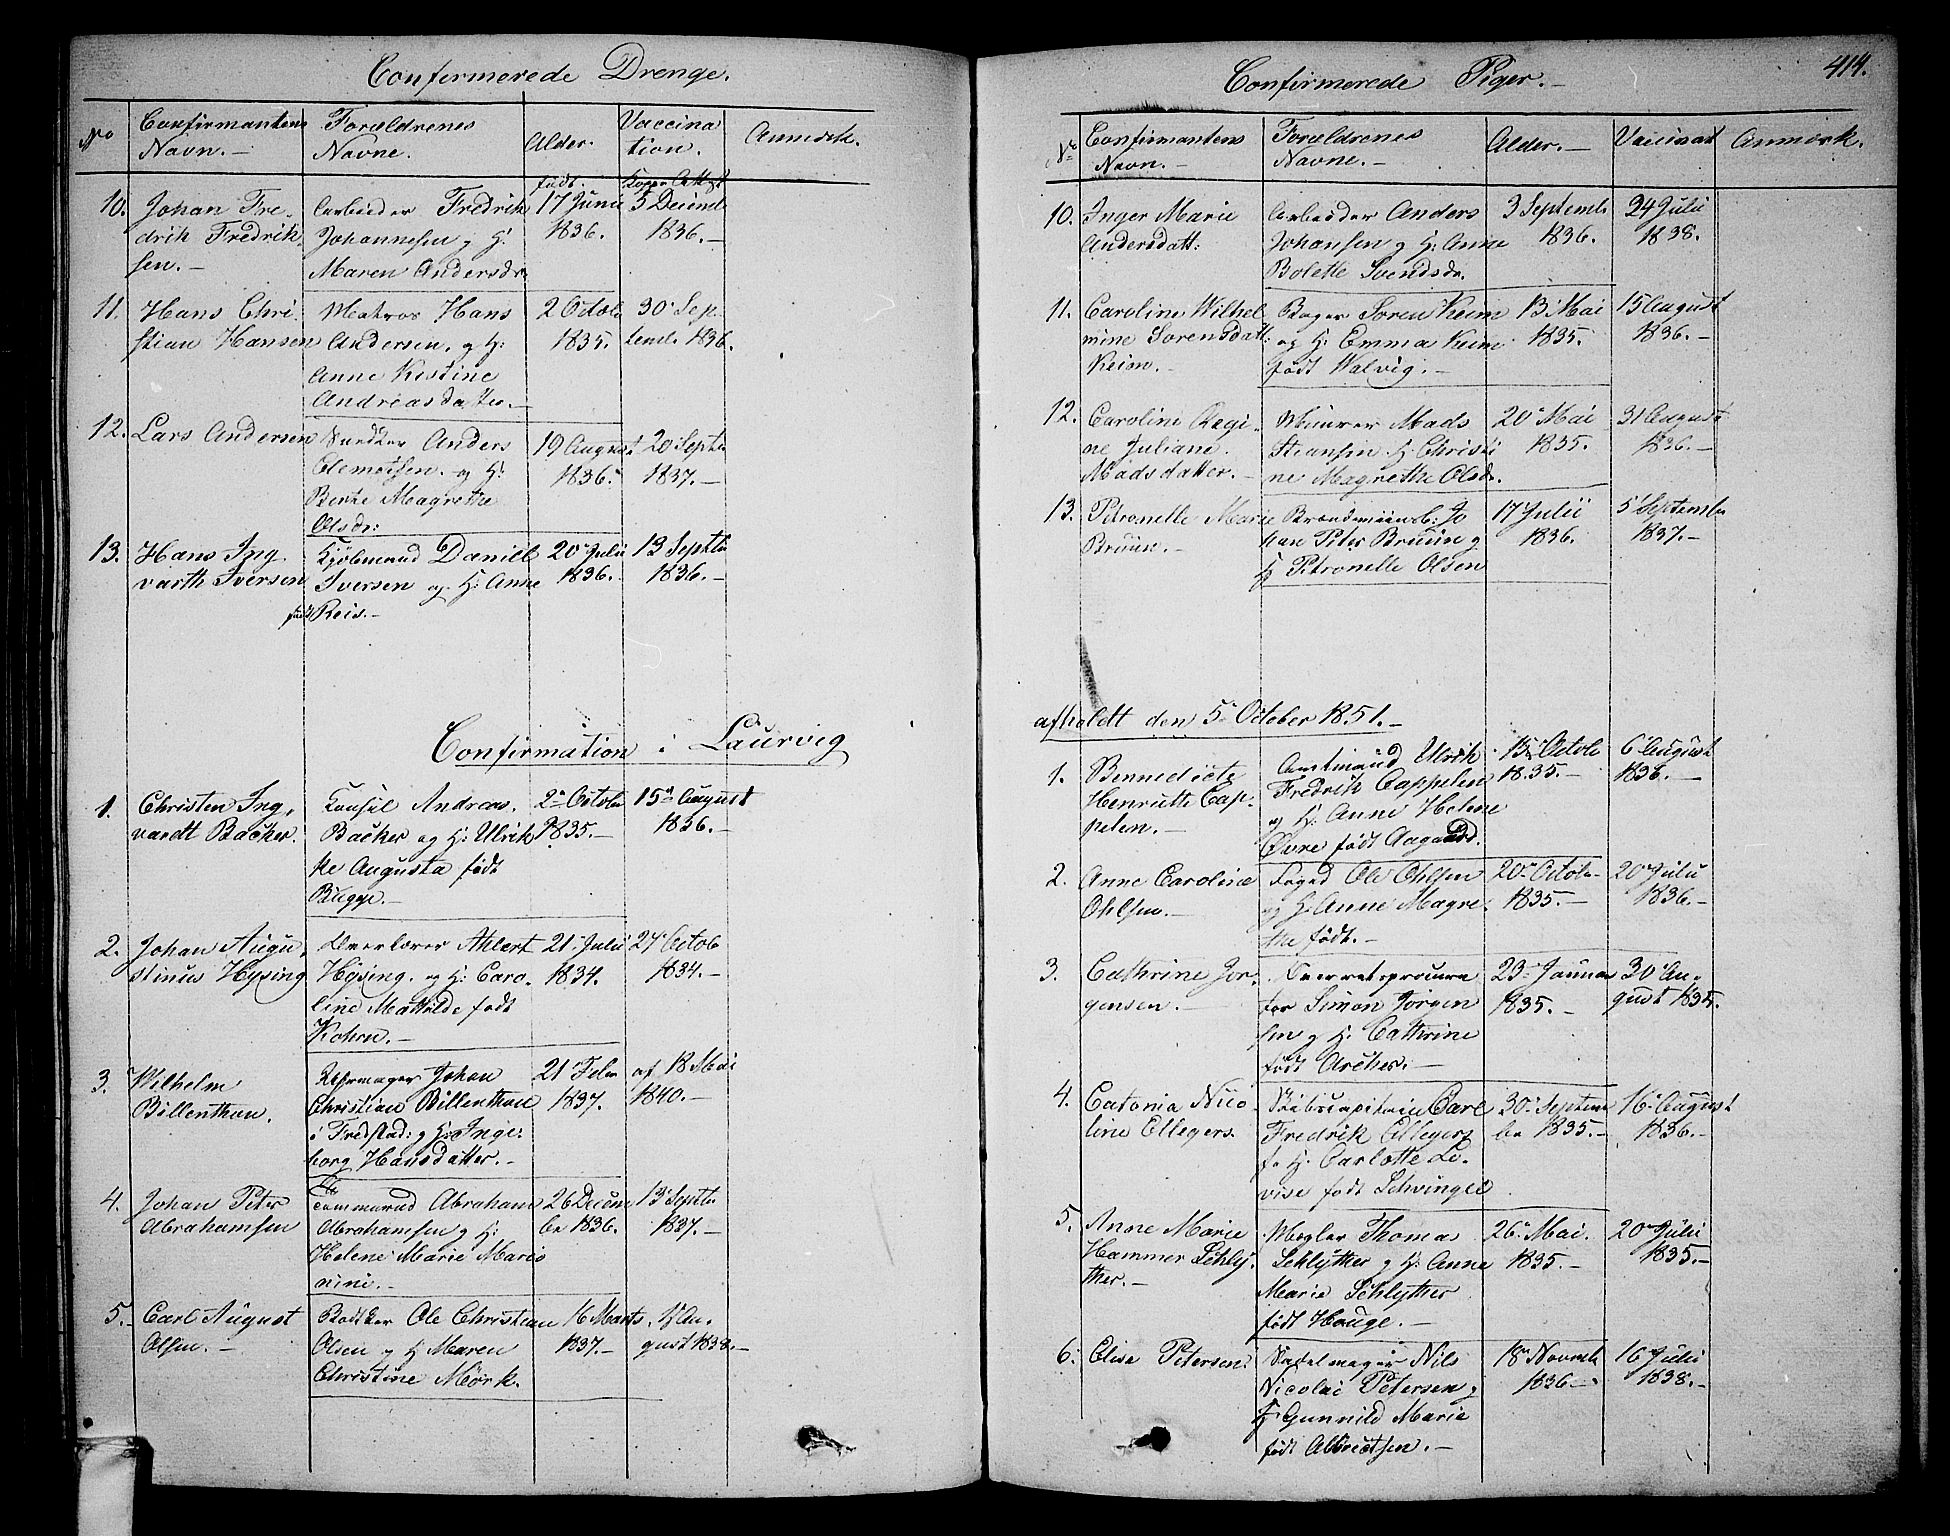 Confermerede Drenge.
No
Confirmantens
Navn.-
Forældrenes
Navne.
Alder.
Vaccina
tion.
Anmærk.
født.
10. Johan Fre-
drik Fredrik
sen.-
Arbeider Fredrik
Johannesen og H:
Maren Andersdr.
17 Junii
1836.
5 Decemb
1836.-
11. Hans Chri-
stian Hansen
Matros Hans
Andersen. og H:
Anne Kistine
Andreasdatter.-
2 Octob
1835.
30 Sep-
temb. 1836.
12. Lars Andersen
Snedker Anders
Clemetsen. og H:
Berte Magrethe
Olsdr:
19 August
1836.
20 Septb
1837.-
13. Hans Ing
varth Iversen
Kjøbmand Daniel
Iversen og H: Anne
født Reis.-
20 Julii
1836.
13 Septb
1836.-
Confirmation i Laurvig
1. Christen Ing-
vardt Backer.
Konsul Andreas
Backer og H: Ulrik
ke Augusta født
Bugge.-
2 Octob
1835.-
15 August
1836.-
2. Johan Augu
stinus Hysing
Overlærer Ahlert
Hysing. og H: Caro-
line Mathilde født
21 Julii
1834.
27 Octob
1834.-
3. Wilhelm
Billenthon.
Johan
Christian Billenthon
i Fredstad: og H: Inge-
borg Hansdatter.-
21 Febr
1837.
af 18 Mai
1840.-
4. Johan Peter
Abrahamsen
Tømmermd Abraham
Abrahamsen og H:
Helene Marie Maris
nini.-
26 Decem
br 1836.
13 Septb
1837.-
5.- Carl August
Olsen.-
Bødtker Ole Christian
Olsen og H: Maren
Christine Mörk.
16 Marts
1837.-
17 Au-
gust 1838.-
414.
Confirmerede Piger.-
No
Confirmantens
Navn.-
Forældrenes
Navne.-
Alder.-
Vaccinat
Anmærk.
10. Inger Marie
Andersdatt:
Arbeider Anders
Johansen og H: Anne
Bolette Svendsdr.
3 Septemb
1836.
24 Julii
1838.
11. Caroline Wilhel
mine Sørensdatt:
Keim.-
Bager Søren Keim
og H: Emma Keim
født Walvig.-
13 Mai
1835.
15 August
1836.-
12. Caroline Regi-
ne Juliane
Madsdatter.-
Muurer Mads
Steensen. H: Christi
ne Magrethe Olsdr.
20 Mai
1835.
31 August
1836.-
13. Petronelle Marie
Bruun.-
Jo
han Peter Bruun og
H: Petronelle Olsen
17 Julii
1836.
5 Septembr
1837.-
afholdt den 5 October 1851.-
1. Bennedicte
Henriette Cap-
pelen.-
Amtmand Ulrik
Fredrik Cappelen
og H: Anne Helene
Øvre født Aagaard.
15 Octob
1835.-
6 August
1836.-
2. Anne Caroline
Ohlsen.-
Foged Ole Ohlsen
og H: Anne Magre-
the født.-
20 Octob-
1835.-
20 Julii
1836.-
3. Cathrine Jør-
gensen.-
Overretsprocura
tor Simon Jørgen
sen og H: Cathrine
født Archer.-
23 Januar
1835.-
30 Au-
gust 1835.
4. Catonia Nico-
line Ellegers.
Skibscapitain Carl
Fredrik Ellegers
H: Carlotte Lo-
vise født Schvingel
30 Septem
br 1835.-
16 August
1836.-
5. Anne Marie
Hammer Schly-
ther.-
Mægler Thomas
Schlyther og H: Anne
Marie Schlyther
født Houge.-
26 Mai.
1835.-
20 Julii
1835.-
6. Elise Petersen
Sadelmager Nils
Nicolai Petersen og
H: Gunnild Marie
født Albrictsen.-
18 Novmb
1836-
16 Julii
1838.-